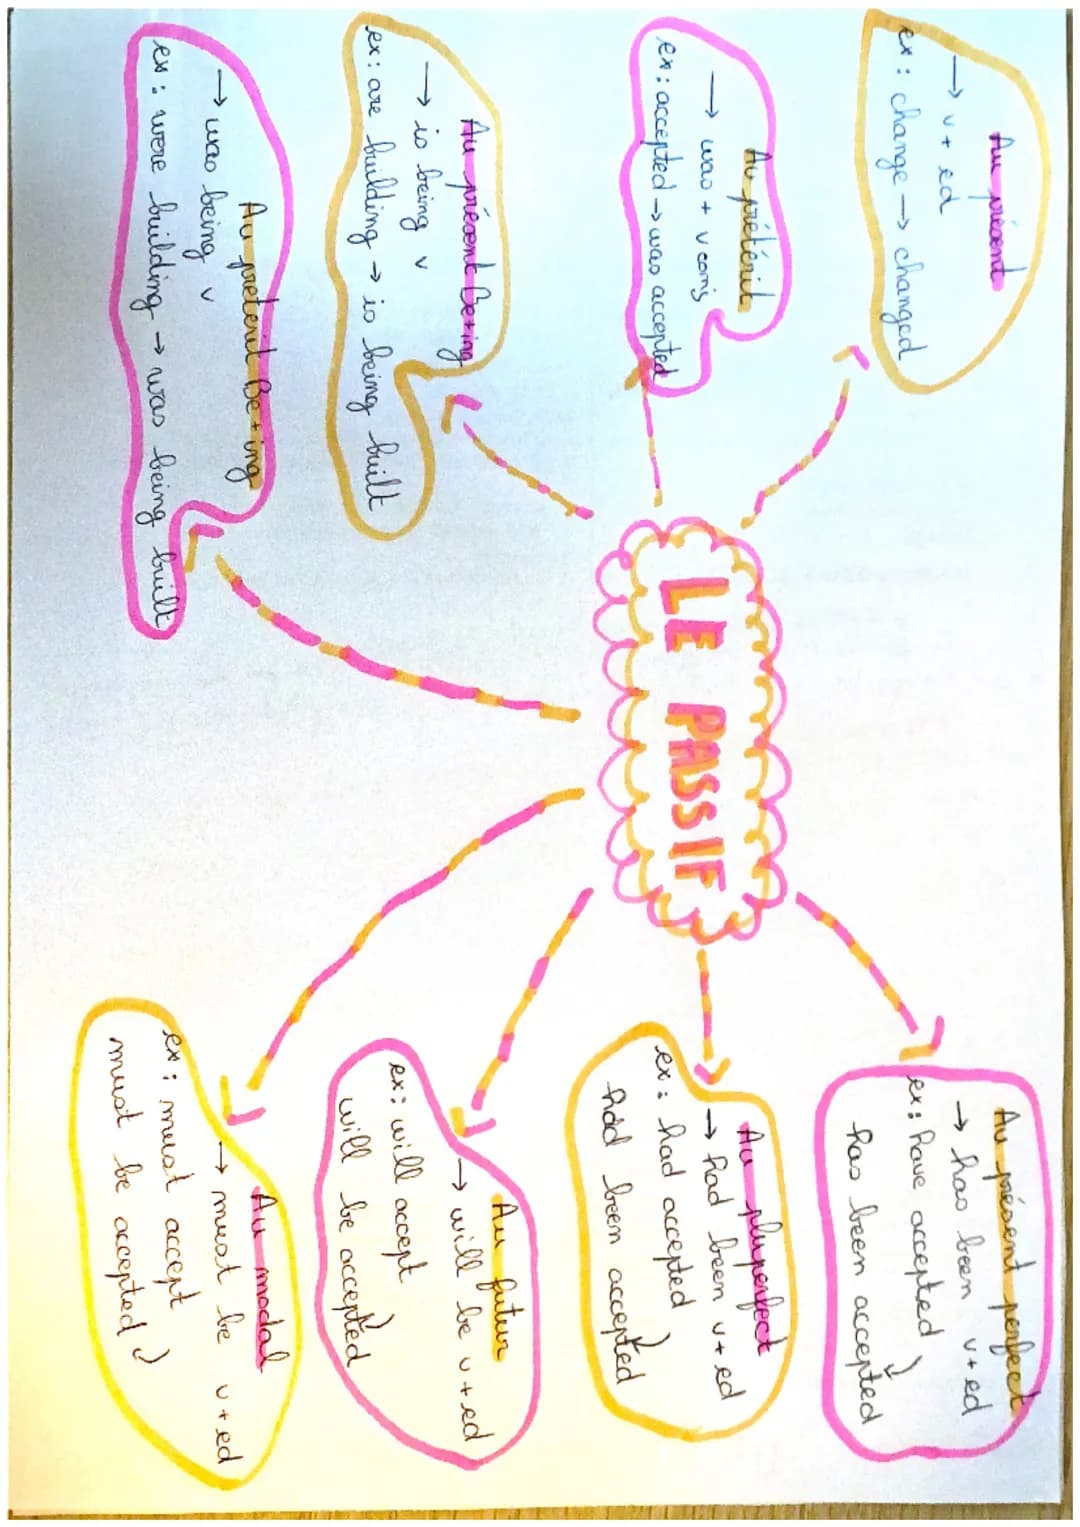 LE PASSIF
Au présent
→ v + ed
ex : change → changed
Au prétérit
→ was + v
ex : accepted → was accepted
Au présent Be+ing
→ is being v
ex : are building → is being built
Au preterit Be + ing
→ was being v
ex : were building → was being built
Au présent perfect
→ has been v+ed
ex : have accepted
has been accepted
Au pluperfect
→ had been v+ed
ex : had accepted
had been accepted
Au futur
→ will be v+ed
ex : will accept
will be accepted
Au modal
→ must be v+ed
ex : must accept
must be accepted